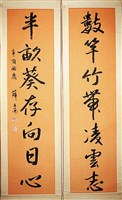 數竿竹帶凌雲志
半畝葵存向日心